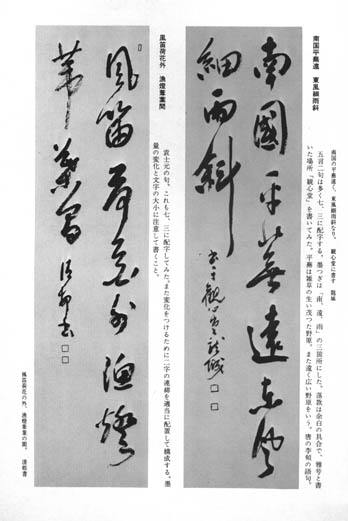 南国平蕪遠 東風細雨斜
南国の平蕪遠く、東風細雨斜なり。 観心堂に書す
五言二句は多く七、三に配字する。墨つぎは「南、遠、雨」の三箇所にした。落款は余白の具合で、雅号と書
いた場所、「観心堂」を書いてみた。平蕪は雑草の生い茂つた野原。また遠く広い野原をいう。唐の李頎の語句。
南國平蕪遠東風
細雨斜
風笛荷花外 漁燈葦葉間
袁士元の句。これも七、三に配字してみた。また変化をつけるために二字の連綿を適当に配置して構成する。墨
量の変化と文字の大小に注意して書くこと。
風笛荷花外漁燈
葦葉間
風笛荷花の外、漁燈葦葉の間。